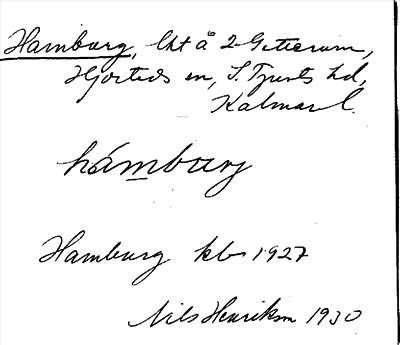 Hamburg, lht å 2 Getterum,
Hjorteds sn, S. Tjusts hd,
Kalmar l.
hámburj
Hamburg kb 1927
Nils Henrikson 1930